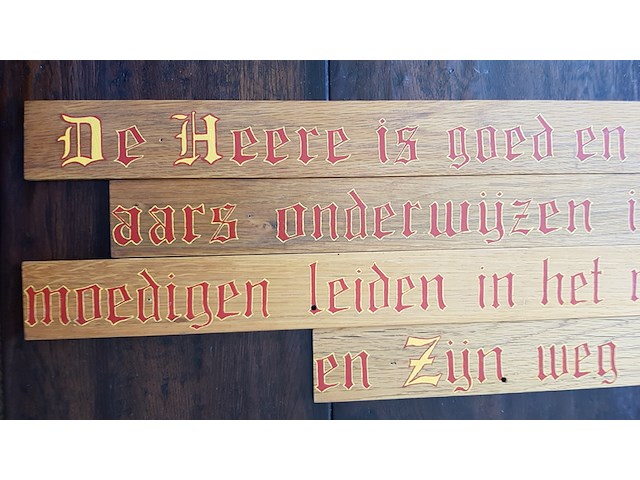 De Heere is goed en
aars onderwijzen i
moedigen leiden in het
en Zijn weg